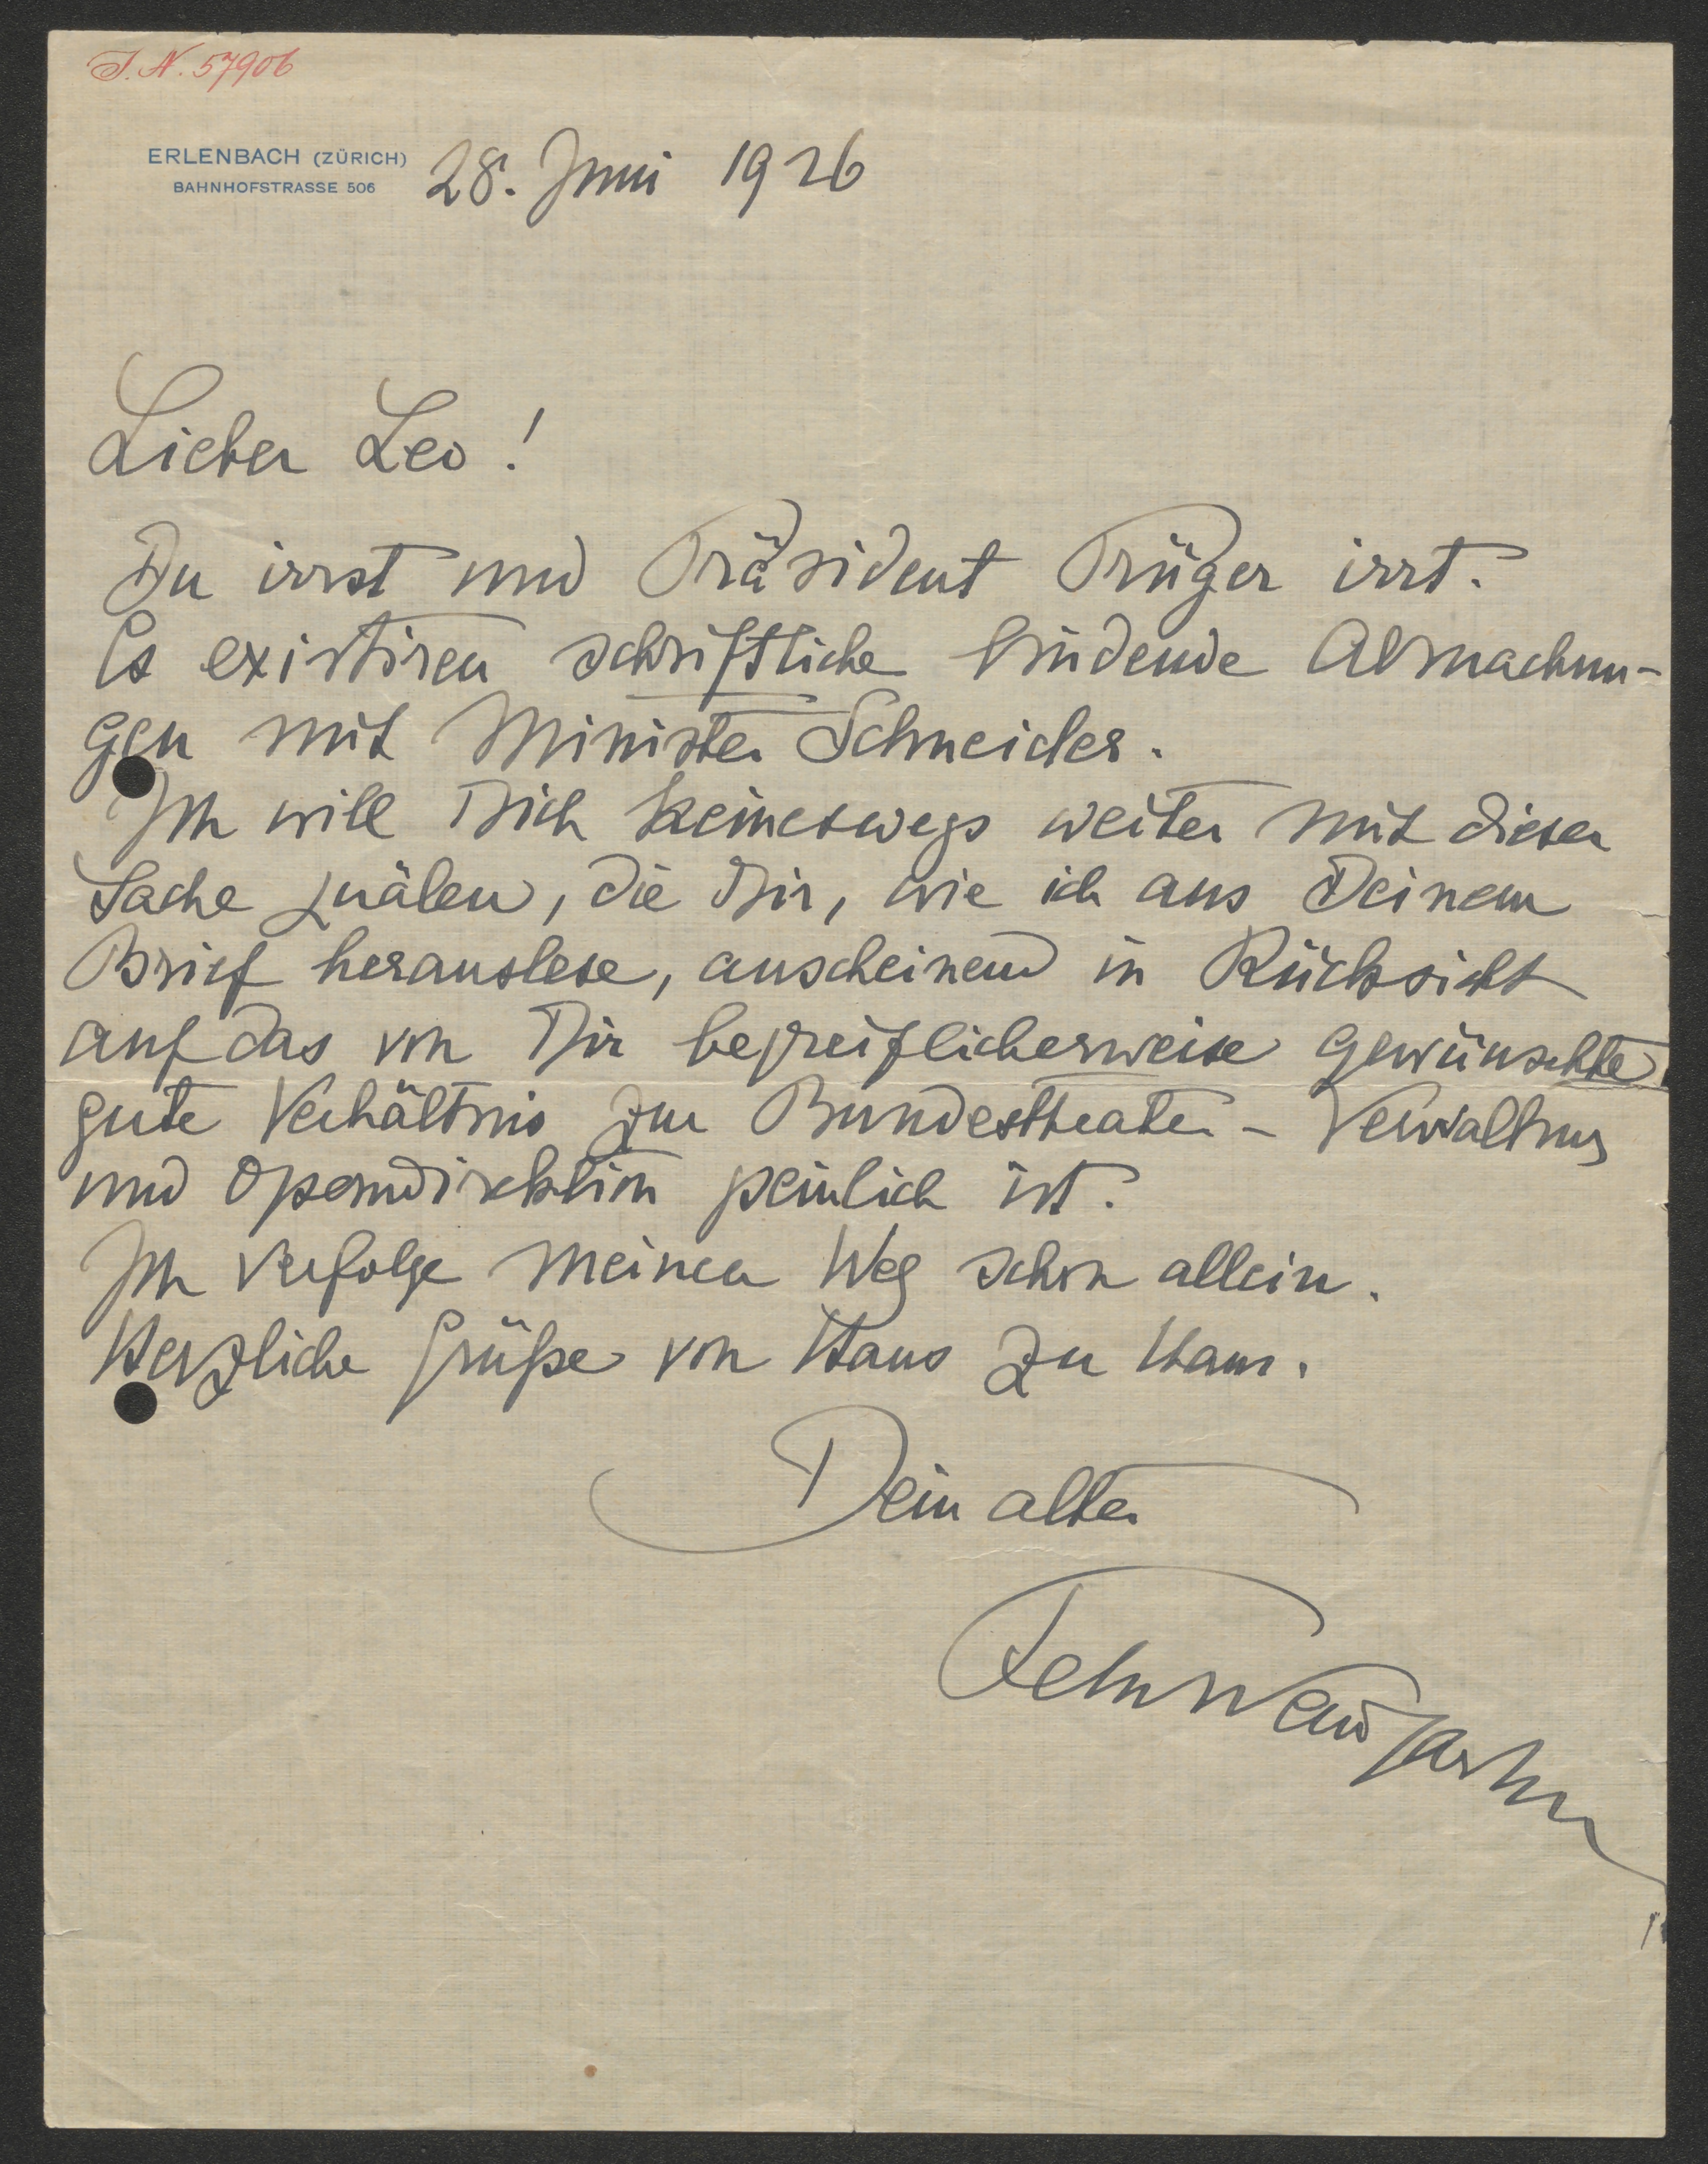 I. N. 57906
ERLENBACH (ZÜRICH)
BAHNHOFSTRASSE 506
28. Juni 1926
Lieber Leo!
Du irrst und Präsident Prüger irrt.
Es existiren schriftliche bindende Abmachun-
gen mit Minister Schneider.
Ich will Dich keineswegs weiter mit dieser
Sache quälen, die Dir, wie ich aus Deinem
Brief herauslese, anscheinend in Rücksicht
auf das von Dir begreiflicherweise gewünschte
gute Verhältnis zur Bundestheater-Verwaltung
und Operndirektion peinlich ist.
Ich verfolge meinen Weg schon allein.
Herzliche Grüße von Haus zu Haus.
Dein alter
Felix Weingartner